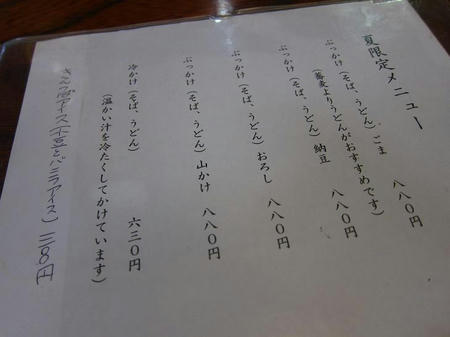 夏限定メニュー
ぶっかけ（そば、うどん）ごま 八八〇円
（蕎麦よりうどんがおすすめです）
ぶっかけ（そば、うどん）納豆 八八〇円
ぶっかけ（そば、うどん）おろし 八八〇円
ぶっかけ（そば、うどん）山かけ 八八〇円
冷かけ（そば、うどん） 六三〇円
（温かい汁を冷たくしてかけています）
アイス） 三三〇円